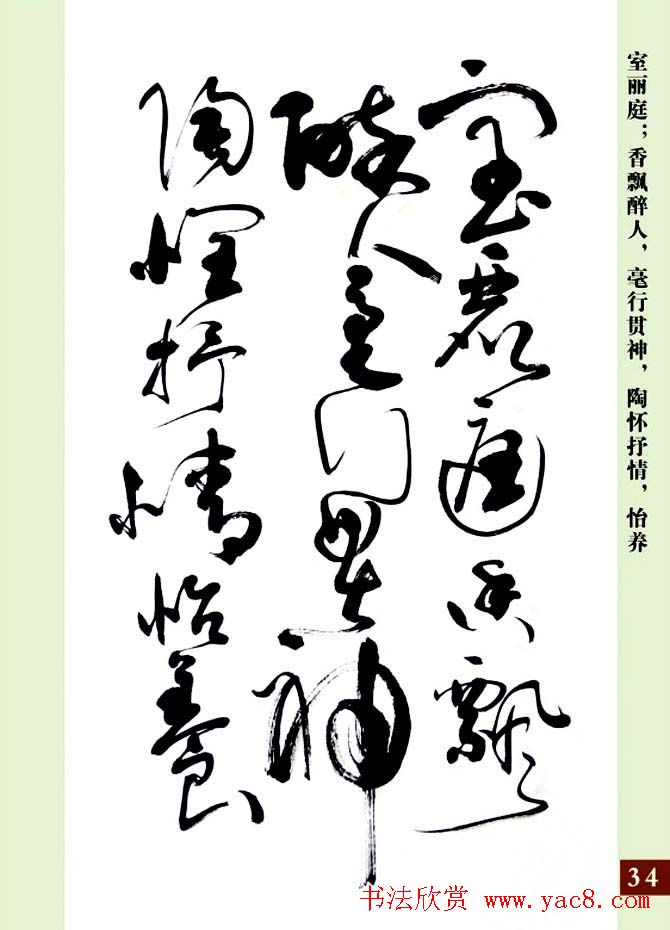 室麗庭香飘
醉人毫行貫神
陶懷抒情怡養
室丽庭；香飘醉人，毫行贯神，陶怀抒情，怡养
34
书法欣赏 www.yac8.com